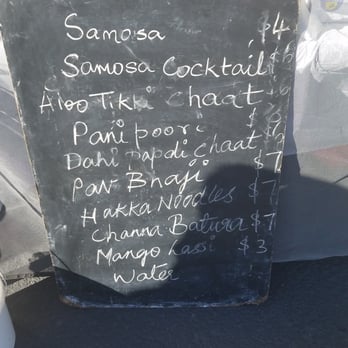 Samosa $4
Samosa Cocktail $5
Aloo Tikki Chaat
Pani poori $
Dahi Papdi Chaat
Pav Bhaji $7
Hakka Noodles $7
Channa Batura $7
Mango Lassi $3
Water